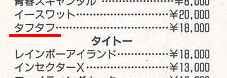 青春スキャンダル………¥8,000
イースワット………………¥20,000
タフタフ……………………¥18,000
タイトー
レインボーアイランド……¥18,000
インセクターX……………¥13,000